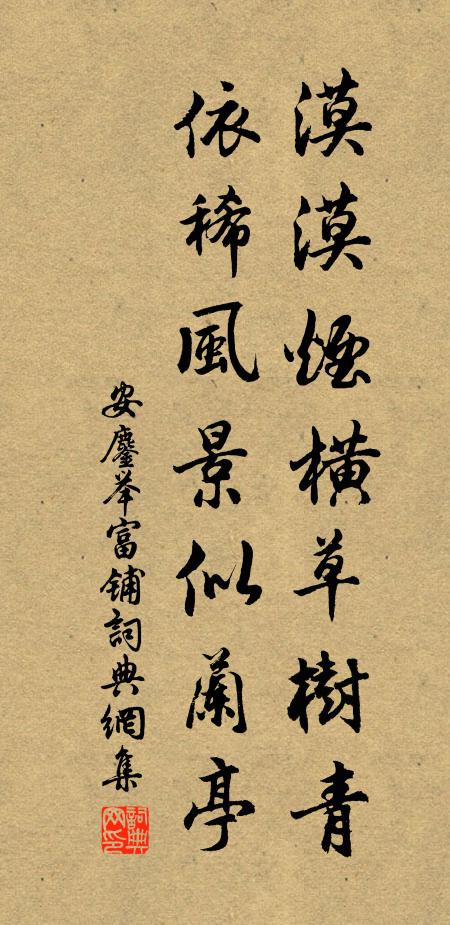 漠漠煙橫草樹青
依稀風景似蘭亭
安鏖举富铺詞典網集
詞典網印